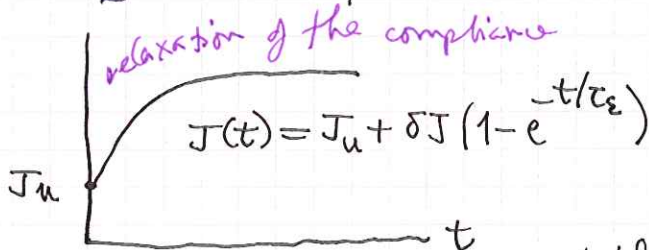 relaxation of the compliance
J(t) = J_u + δJ(1 - e^{-t/τ_ε})
J_u
t